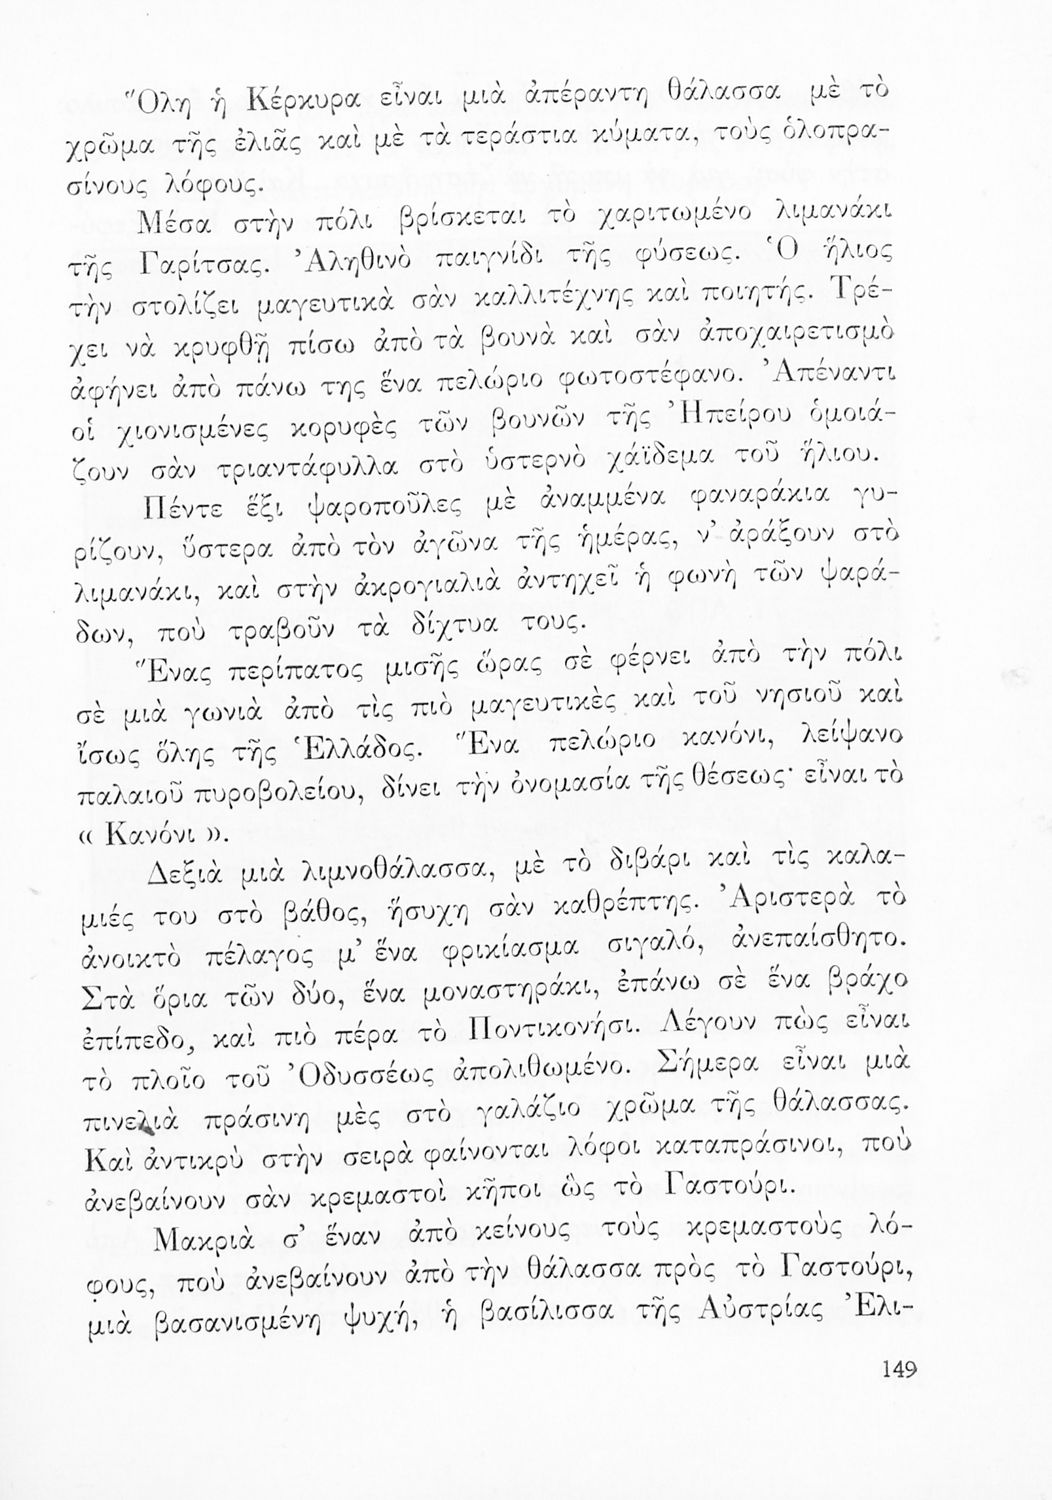 Ὅλη ἡ Κέρκυρα εἶναι μιὰ ἀπέραντη θάλασσα μὲ τὸ
χρῶμα τῆς ἐλιᾶς καὶ μὲ τὰ τεράστια κύματα, τοὺς ὁλοπρα-
σίνους λόφους.
Μέσα στὴν πόλι βρίσκεται τὸ χαριτωμένο λιμανάκι
τῆς Γαρίτσας. Ἀληθινὸ παιγνίδι τῆς φύσεως. Ὁ ἥλιος
τὴν στολίζει μαγευτικὰ σὰν καλλιτέχνης καὶ ποιητής. Τρέ-
χει νὰ κρυφθῇ πίσω ἀπὸ τὰ βουνὰ καὶ σὰν ἀποχαιρετισμὸ
ἀφήνει ἀπὸ πάνω της ἕνα πελώριο φωτοστέφανο. Ἀπέναντι
οἱ χιονισμένες κορυφὲς τῶν βουνῶν τῆς Ἠπείρου ὁμοιά-
ζουν σὰν τριαντάφυλλα στὸ ὑστερνὸ χάϊδεμα τοῦ ἥλιου.
Πέντε ἕξι ψαροποῦλες μὲ ἀναμμένα φαναράκια γυ-
ρίζουν, ὕστερα ἀπὸ τὸν ἀγῶνα τῆς ἡμέρας, ν’ ἀράξουν στὸ
λιμανάκι, καὶ στὴν ἀκρογιαλιὰ ἀντηχεῖ ἡ φωνὴ τῶν ψαρά-
δων, ποὺ τραβοῦν τὰ δίχτυα τους.
Ἕνας περίπατος μισῆς ὥρας σὲ φέρνει ἀπὸ τὴν πόλι
σὲ μιὰ γωνιὰ ἀπὸ τὶς πιὸ μαγευτικὲς καὶ τοῦ νησιοῦ καὶ
ἴσως ὅλης τῆς Ἑλλάδος. Ἕνα πελώριο κανόνι, λείψανο
παλαιοῦ πυροβολείου, δίνει τὴν ὀνομασία τῆς θέσεως· εἶναι τὸ
« Κανόνι ».
Δεξιὰ μιὰ λιμνοθάλασσα, μὲ τὸ διβάρι καὶ τὶς καλα-
μιές του στὸ βάθος, ἥσυχη σὰν καθρέπτης. Ἀριστερὰ τὸ
ἀνοικτὸ πέλαγος μ’ ἕνα φρικίασμα σιγαλό, ἀνεπαίσθητο.
Στὰ ὅρια τῶν δύο, ἕνα μοναστηράκι, ἐπάνω σὲ ἕνα βράχο
ἐπίπεδο, καὶ πιὸ πέρα τὸ Ποντικονήσι. Λέγουν πὼς εἶναι
τὸ πλοῖο τοῦ Ὀδυσσέως ἀπολιθωμένο. Σήμερα εἶναι μιὰ
πινελιὰ πράσινη μὲς στὸ γαλάζιο χρῶμα τῆς θάλασσας.
Καὶ ἀντικρὺ στὴν σειρὰ φαίνονται λόφοι καταπράσινοι, ποὺ
ἀνεβαίνουν σὰν κρεμαστοὶ κῆποι ὣς τὸ Γαστούρι.
Μακριὰ σ’ ἕναν ἀπὸ κείνους τοὺς κρεμαστοὺς λό-
φους, ποὺ ἀνεβαίνουν ἀπὸ τὴν θάλασσα πρὸς τὸ Γαστούρι,
μιὰ βασανισμένη ψυχή, ἡ βασίλισσα τῆς Αὐστρίας Ἐλι-
149